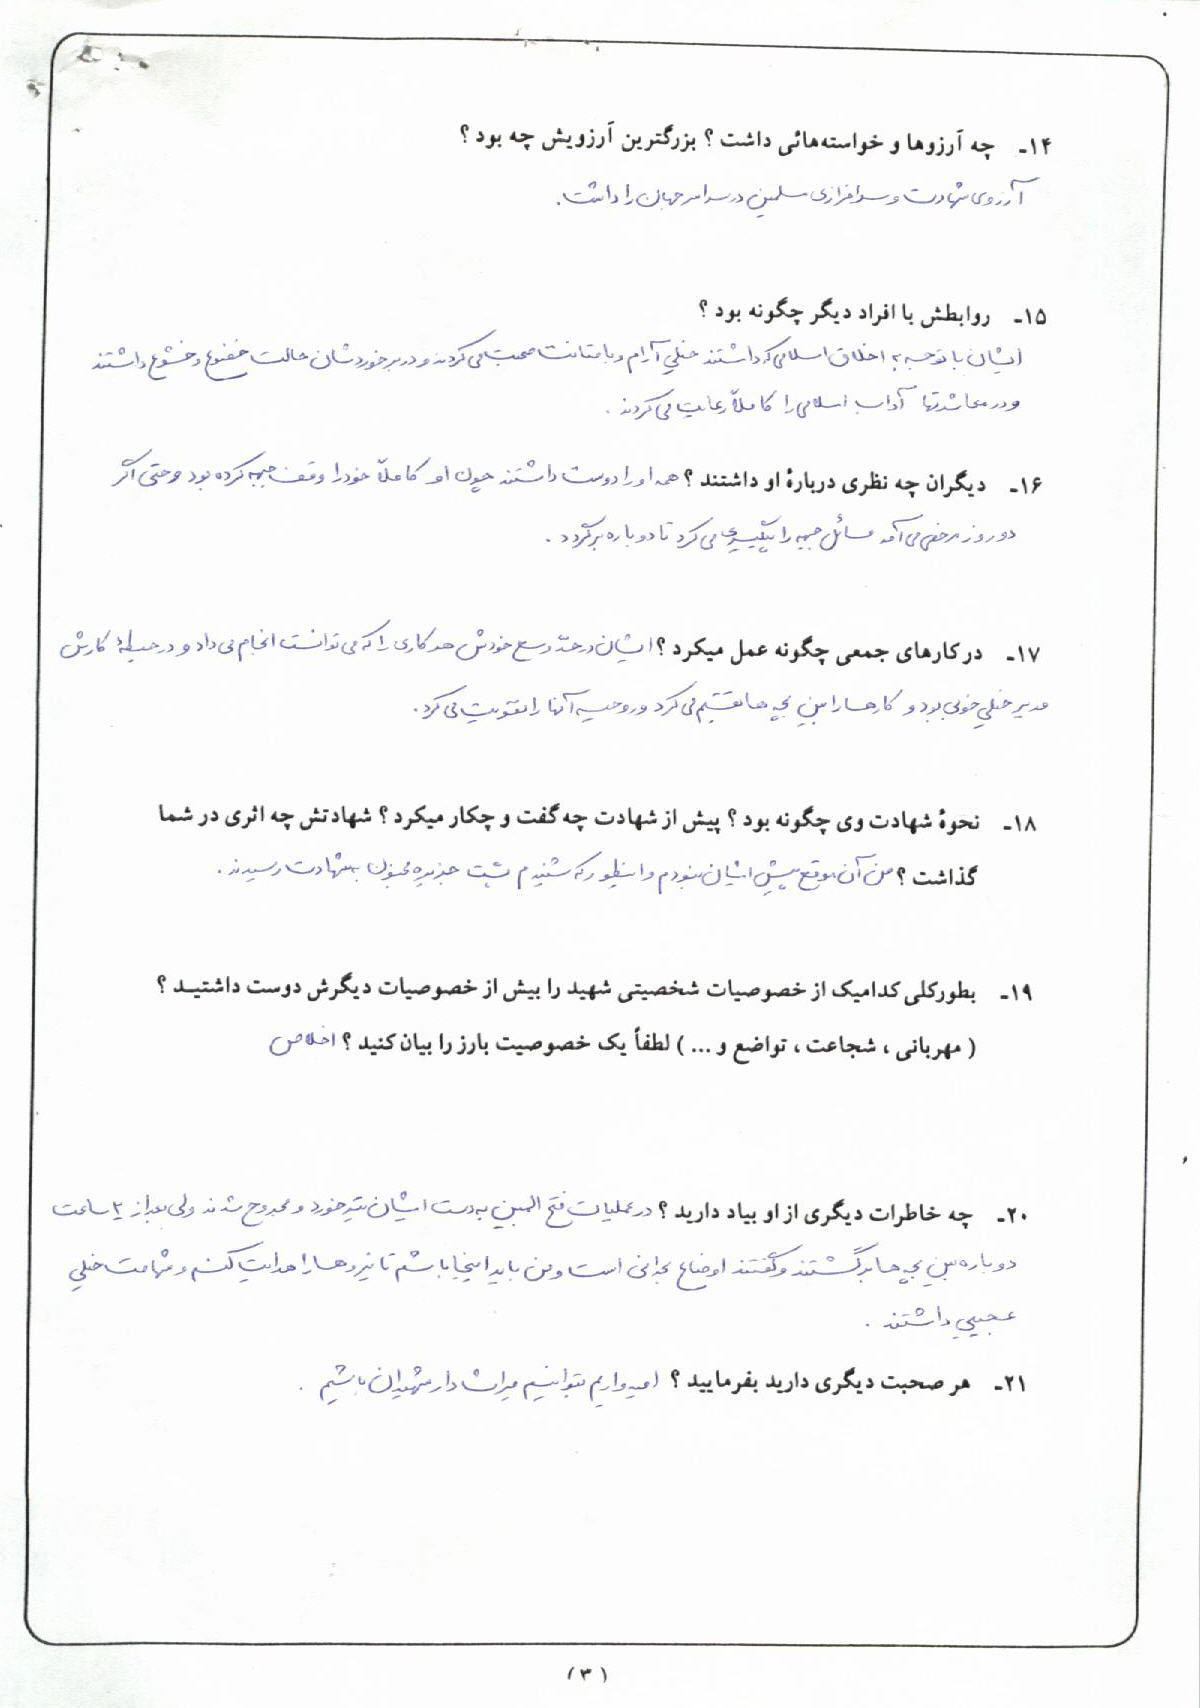 ۱۴ـ چه آرزوها و خواسته‌هائی داشت ؟ بزرگترین آرزویش چه بود ؟
آرزوی شهادت و سرافرازی مسلمین در سراسر جهان را داشت.
۱۵ـ روابطش با افراد دیگر چگونه بود ؟
ایشان با توجه به اخلاق اسلامی که داشتند خیلی آرام و با متانت صحبت می کردند و در برخوردشان حالت خضوع و خشوع داشتند
و در معاشرتها آداب اسلامی را کاملاً رعایت می کردند .
۱۶ـ دیگران چه نظری دربارهٔ او داشتند ؟ همه او را دوست داشتند چون او کاملاً خود را وقف جبهه کرده بود و حتی اگر
دو روز مرخصی می آمد مسائل جبهه را پیگیری می کرد تا دوباره برگردد .
۱۷ـ در کارهای جمعی چگونه عمل میکرد ؟ ایشان در حدّ وسع خودش هر کاری را که می توانست انجام می داد و در حیطهٔ کارش
مدیر خیلی خوبی بود و کارها را بین بچه ها تقسیم می کرد و روحیه آنها را تقویت می کرد .
۱۸ـ نحوهٔ شهادت وی چگونه بود ؟ پیش از شهادت چه گفت و چکار میکرد ؟ شهادتش چه اثری در شما
گذاشت ؟ من آن موقع پیش ایشان نبودم و اینطور که شنیدم پشت جزیره مجنون به شهادت رسیدند .
۱۹ـ بطورکلی کدامیک از خصوصیات شخصیتی شهید را بیش از خصوصیات دیگرش دوست داشتید ؟
( مهربانی ، شجاعت ، تواضع و ... ) لطفاً یک خصوصیت بارز را بیان کنید ؟ اخلاص
۲۰ـ چه خاطرات دیگری از او بیاد دارید ؟ در عملیات فتح المبین به دست ایشان تیر خورد و مجروح شدند ولی بعد از ۲ ساعت
دوباره بین بچه ها برگشتند و گفتند اوضاع بحرانی است و من باید اینجا باشم تا نیروها را هدایت کنم و شهامت خیلی
عجیبی داشتند .
۲۱ـ هر صحبت دیگری دارید بفرمایید ؟ امیدواریم بتوانیم میراث دار شهیدان باشیم .
( ۳ )